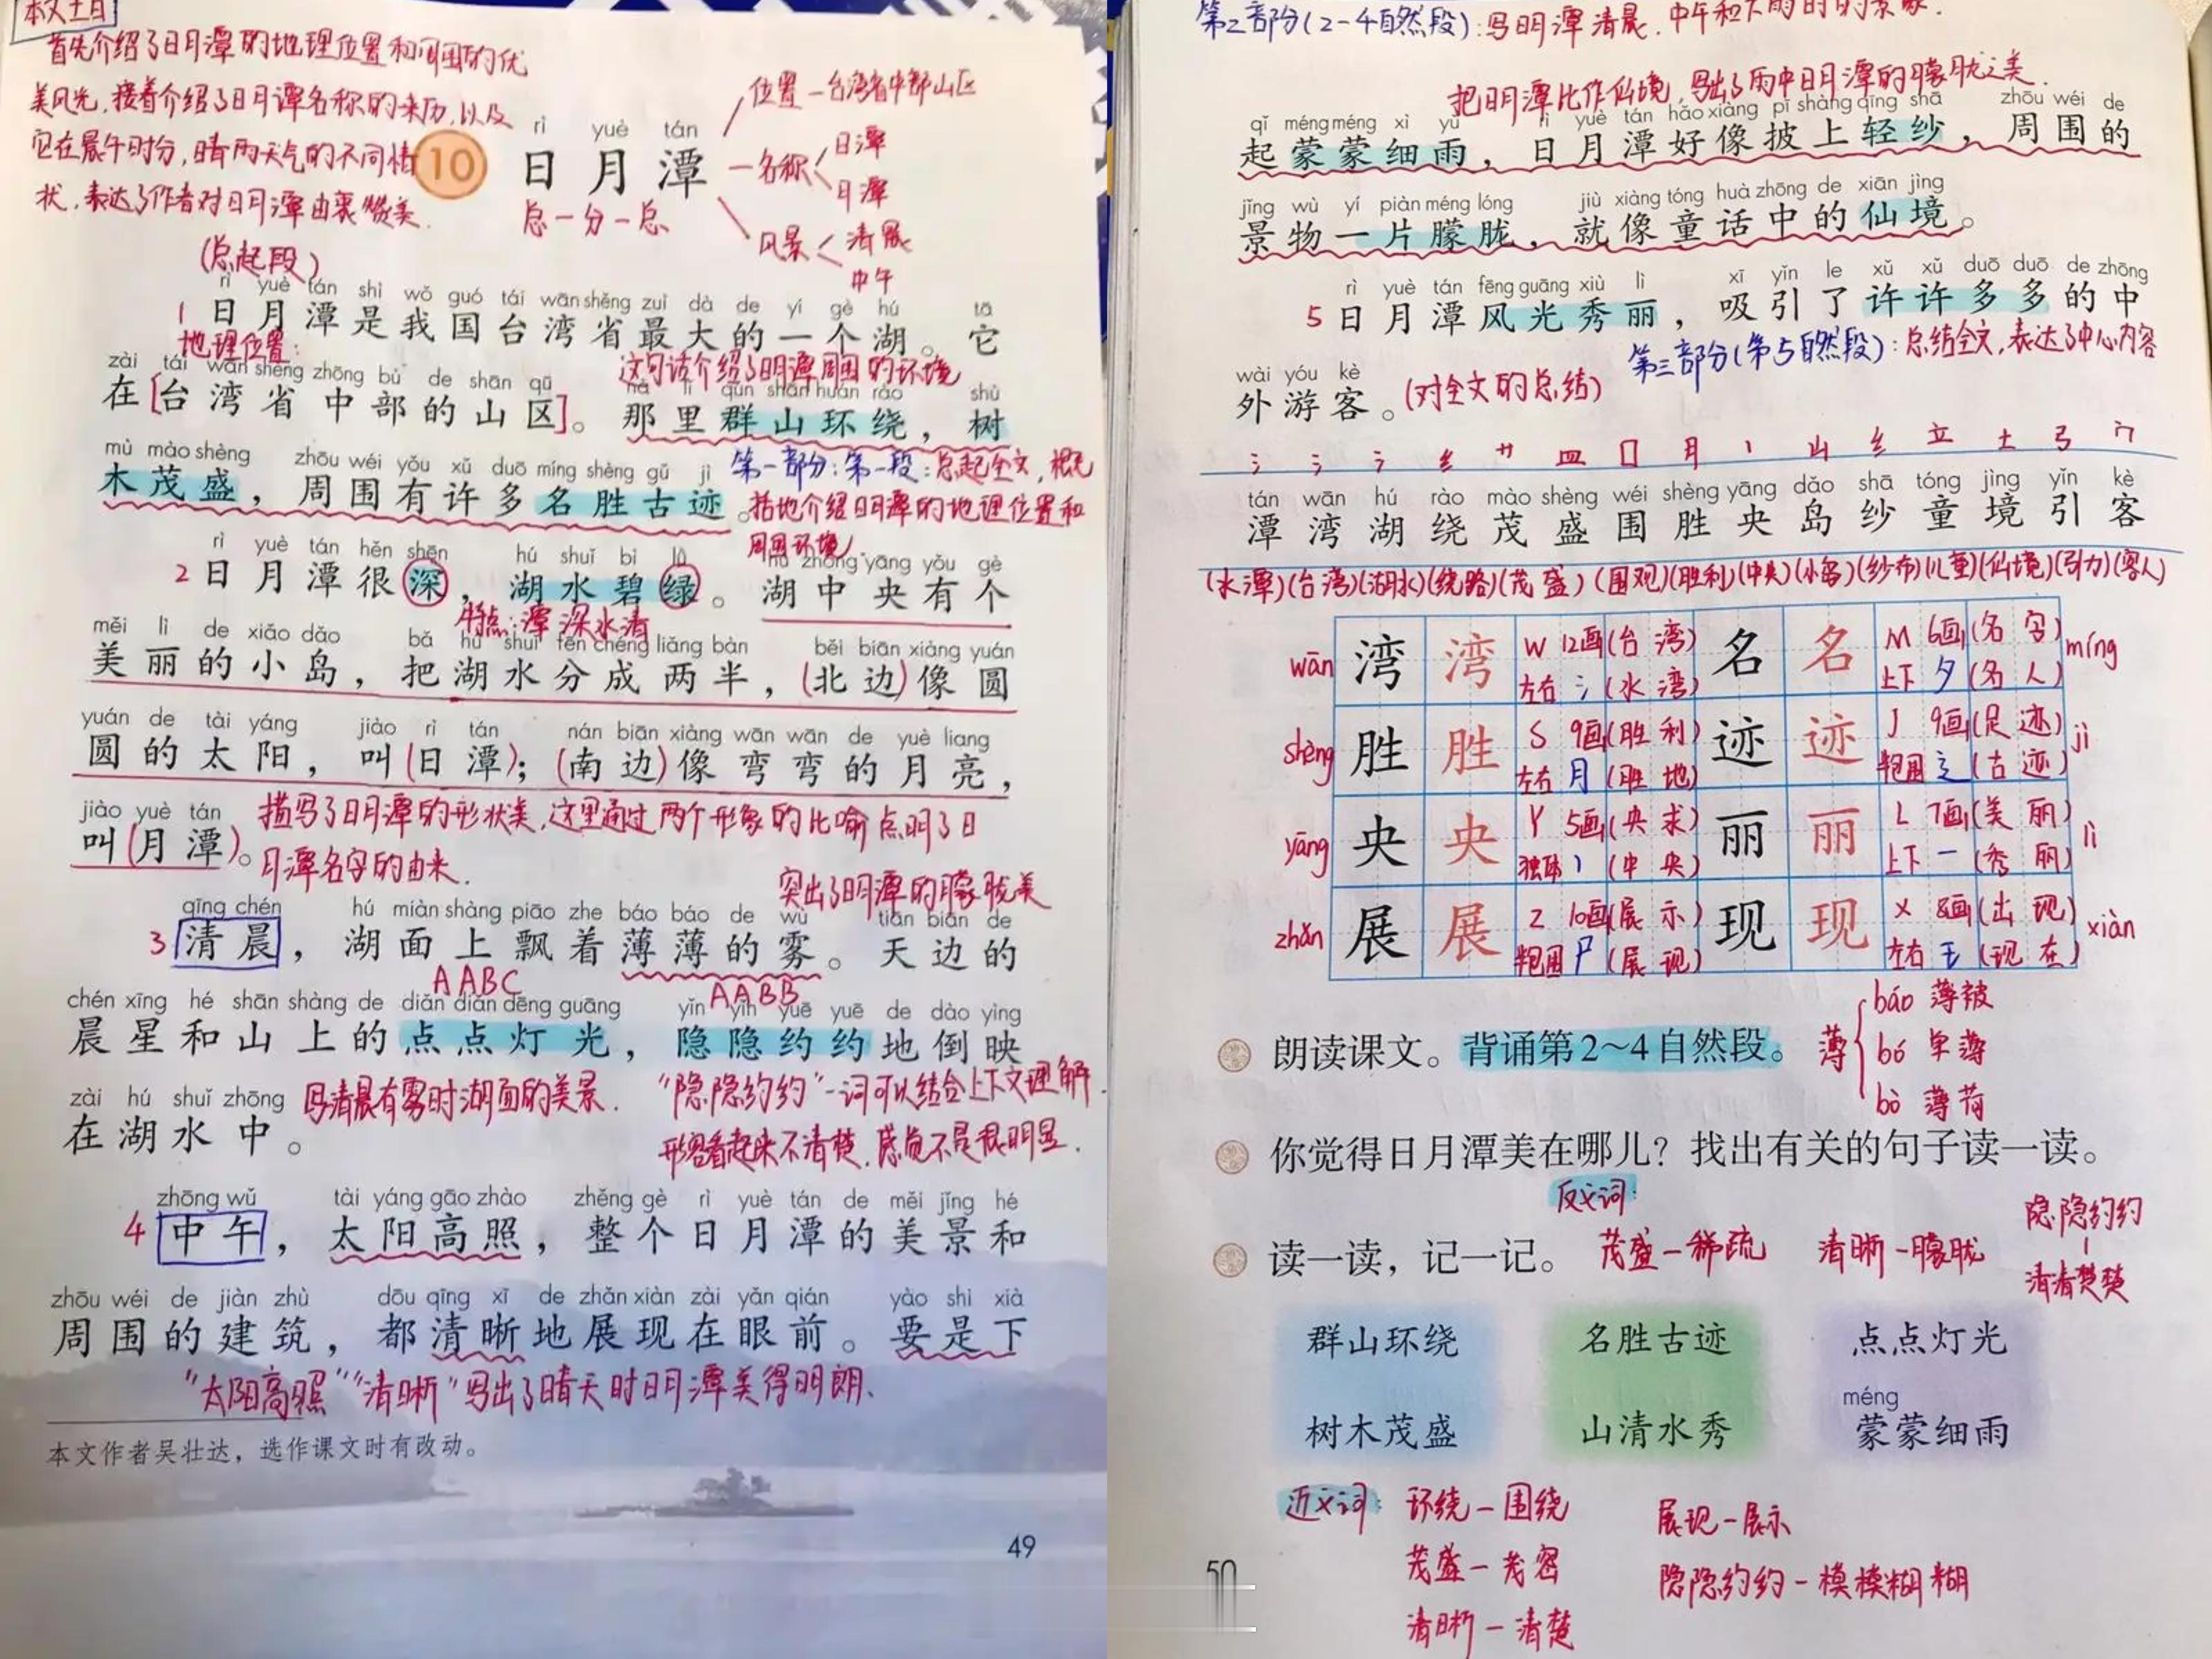 首先介绍了日月潭的地理位置和周围的优
美风光,接着介绍了日月潭名称的来历,以及
它在晨午时分,晴雨天气的不同情
状,表达了作者对日月潭由衷赞美.
10
rì yuè tán
日月潭
总—分—总
位置—台湾省中部山区
名称
日潭
月潭
风景
清晨
中午
(总起段)
rì yuè tán shì wǒ guó tái wān shěng zuì dà de yí gè hú tā
1 日月潭是我国台湾省最大的一个湖。它
地理位置:
这句话介绍了日月潭周围的环境
zài tái wān shěng zhōng bù de shān qū nà lǐ qún shān huán rào shù
在[台湾省中部的山区]。那里群山环绕，树
mù mào shèng zhōu wéi yǒu xǔ duō míng shèng gǔ jì
木茂盛，周围有许多名胜古迹。
第一部分:第一段:总起全文,概
括地介绍日月潭的地理位置和
周围环境.
rì yuè tán hěn shēn hú shuǐ bì lǜ hú zhōng yāng yǒu gè
2 日月潭很深，湖水碧绿。湖中央有个
特点:潭深水清
měi lì de xiǎo dǎo bǎ hú shuǐ fēn chéng liǎng bàn běi biān xiàng yuán
美丽的小岛，把湖水分成两半，(北边)像圆
yuán de tài yáng jiào rì tán nán biān xiàng wān wān de yuè liang
圆的太阳，叫(日潭)；(南边)像弯弯的月亮，
jiào yuè tán
叫(月潭)。
描写了日月潭的形状美,这里通过两个形象的比喻点明了日
月潭名字的由来.
突出了日月潭的朦胧美
qīng chén hú miàn shàng piāo zhe báo báo de wù tiān biān de
3 清晨，湖面上飘着薄薄的雾。天边的
AABC
AABB
chén xīng hé shān shàng de diǎn diǎn dēng guāng yǐn yǐn yuē yuē de dào yìng
晨星和山上的点点灯光，隐隐约约地倒映
zài hú shuǐ zhōng
在湖水中。
写清晨有雾时湖面的美景.
“隐隐约约”一词可以结合上下文理解.
形容看起来不清楚,感觉不是很明显.
zhōng wǔ tài yáng gāo zhào zhěng gè rì yuè tán de měi jǐng hé
4 中午，太阳高照，整个日月潭的美景和
zhōu wéi de jiàn zhù dōu qīng xī de zhǎn xiàn zài yǎn qián yào shi xià
周围的建筑，都清晰地展现在眼前。要是下
“太阳高照”“清晰”写出了晴天时日月潭美得明朗.
本文作者吴壮达，选作课文时有改动。
49
第二部分(2-4自然段):写日月潭清晨.中午和下雨时的景象.
把日月潭比作仙境,写出了雨中日月潭的朦胧之美.
qǐ méng méng xì yǔ rì yuè tán hǎo xiàng pī shàng qīng shā zhōu wéi de
起蒙蒙细雨，日月潭好像披上轻纱，周围的
jǐng wù yí piàn méng lóng jiù xiàng tóng huà zhōng de xiān jìng
景物一片朦胧，就像童话中的仙境。
rì yuè tán fēng guāng xiù lì xī yǐn le xǔ xǔ duō duō de zhōng
5 日月潭风光秀丽，吸引了许许多多的中
第三部分(第5自然段):总结全文,表达了中心内容
wài yóu kè
外游客。(对全文的总结)
氵 氵 氵 纟 艹 皿 囗 月 丨 山 纟 立 土 弓 宀
tán wān hú rào mào shèng wéi shèng yāng dǎo shā tóng jìng yǐn kè
潭湾湖绕茂盛围胜央岛纱童境引客
(水潭)(台湾)(湖水)(绕路)(茂盛)(围观)(胜利)(中央)(小岛)(纱布)(儿童)(仙境)(引力)(客人)
wān 湾 湾 W 12画(台湾) 名 名 M 6画(名字) míng
左右 氵(水湾) 上下 夕(名人)
shèng 胜 胜 S 9画(胜利) 迹 迹 J 9画(足迹) jì
左右 月(胜地) 半包围 辶(古迹)
yāng 央 央 Y 5画(央求) 丽 丽 L 7画(美丽) lì
独体 丨(中央) 上下 一(秀丽)
zhǎn 展 展 Z 10画(展示) 现 现 X 8画(出现) xiàn
半包围 尸(展现) 左右 王(现在)
朗读课文。背诵第2～4自然段。
薄
báo 薄被
bó 单薄
bò 薄荷
你觉得日月潭美在哪儿？找出有关的句子读一读。
反义词:
读一读，记一记。
茂盛—稀疏 清晰—朦胧
隐隐约约
清清楚楚
群山环绕 名胜古迹 点点灯光
méng
树木茂盛 山清水秀 蒙蒙细雨
近义词:
环绕—围绕 展现—展示
茂盛—茂密 隐隐约约—模模糊糊
清晰—清楚
50